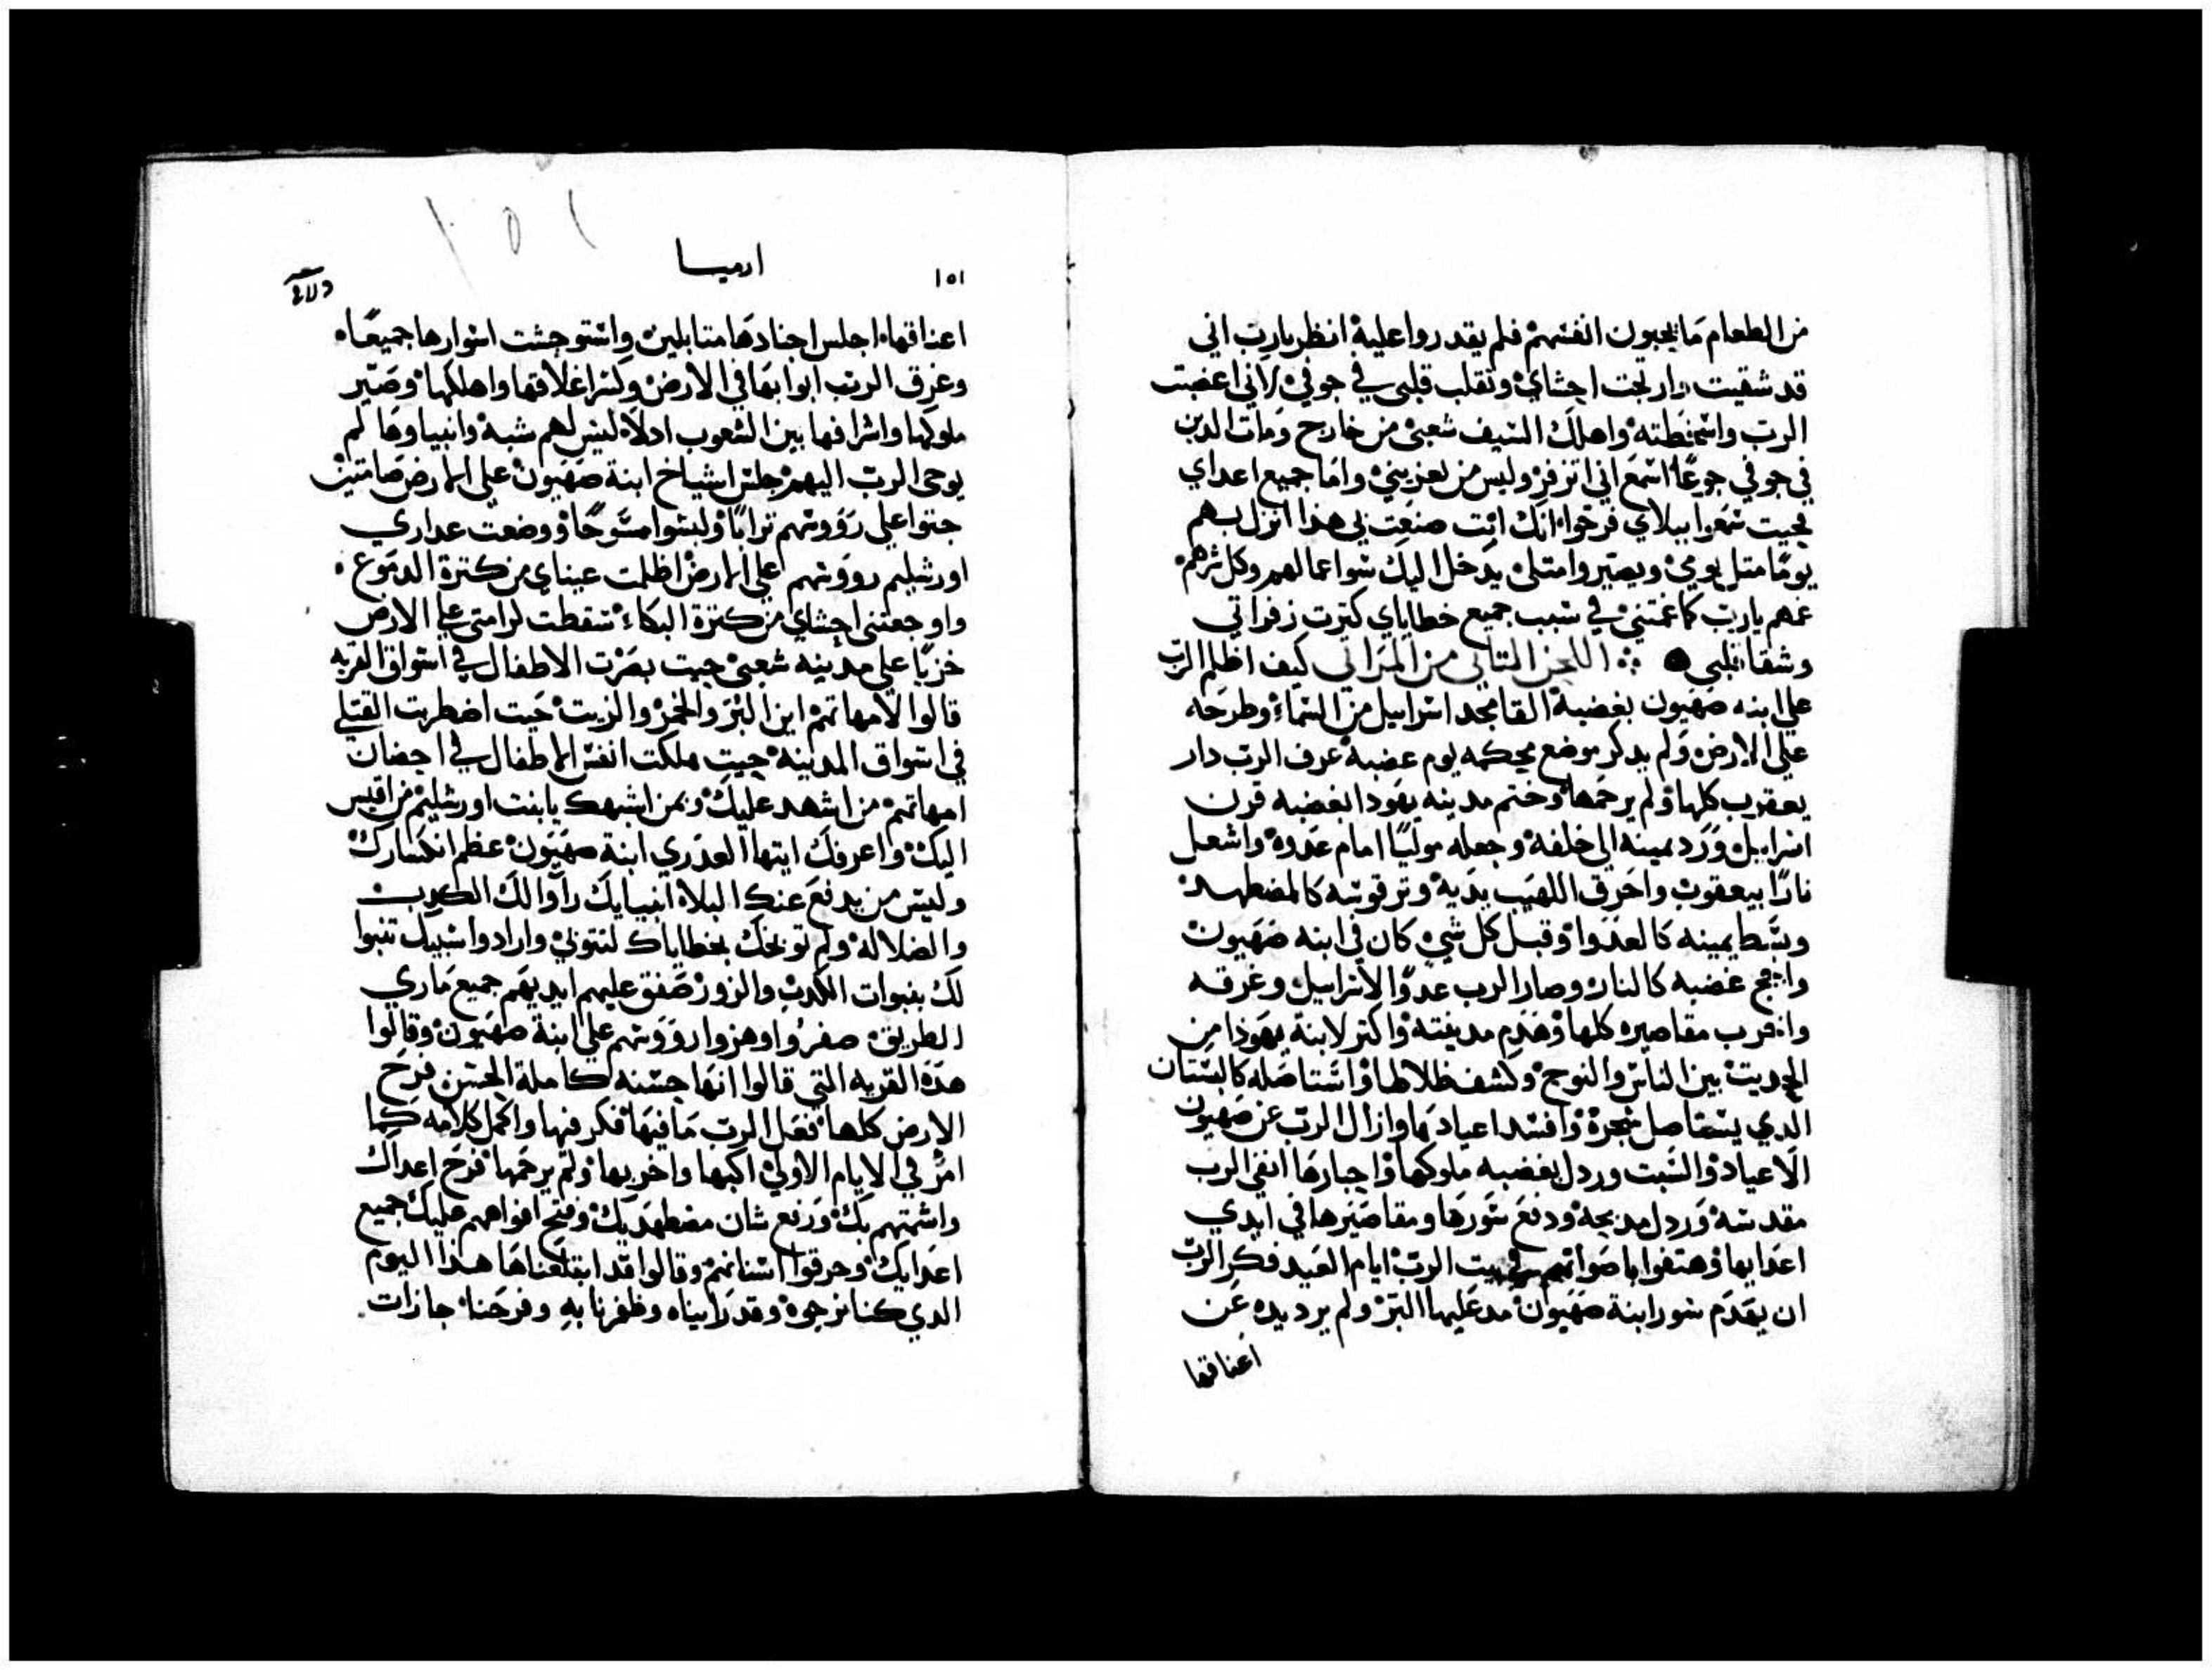 من الطعام ما يحيون انفسهم فلم يقدروا عليه انظر يا رب اني
قد شقيت وارتجت احشاي وتقلب قلبي في جوفي لاني اغضبت
الرب واسخطته واهلك السيف شعبي من خارج ومات الدين
في جوفي جوعًا اسمع اني اتزفر وليس من يعزيني واما جميع اعداي
فحيت سمعوا ببلاي فرحوا انك انت صنعت بي هذا انزل بهم
يومًا متل يومي ويصيروا متلي يدخل اليك سوا اعمالهم وكل شرهم
عمهم يا رب كما عممتني في سبب جميع خطاياي كترت زفراتي
وشقا قلبي اللحن التاني من المراتي كيف اظلم الرب
على ابنه صهيون بغضبه القا مجد اسراييل من السماء وطرحه
على الارض ولم يدكر موضع محكمه يوم غضبه غرف الرب دار
يعقوب كلها ولم يرحمها وختم مدينه يهودا بغضبه قرن
اسراييل ورد يمينه الى خلفه وجعله موليًا امام عدوه واشعل
نارًا بيعقوب واحرق اللهيب يديه وتر قوسه كالمضطهد
وبسط يمينه كالعدوا وقبل كل شي كان في ابنه صهيون
واجج غضبه كالنار وصار الرب عدوًا لاسراييل وغرقه
واخرب مقاصيره كلها وهدم مدينته واكتر لابنة يهودا من
الحديت بين الناس والنوح وكشف ظلالها واستاصله كالبستان
الدي يستاصل شجره وافسد اعيادها وازال الرب عن صهيون
الاعياد والسبت وردل بغضبه ملوكها واحبارها انفي الرب
مقدسه وردل مدبحه ودفع سورها ومقاصيرها في ايدي
اعدايها وهتفوا باصواتهم في بيت الرب ايام العيد فكر الرب
ان يهدم سور ابنة صهيون مد عليها البتر ولم يرد يده عن
اعناقها
١٥١
ارميا
١٥١
اعناقها اجلس اجنادها متابلين واستوحشت اسوارها جميعًا
وغرق الرب ابوابها في الارض وكسر اغلاقها واهلكها وصير
ملوكها واشرافها بين الشعوب ادلاه ليس لهم شبه وانبياوها لم
يوحى الرب اليهم جلس اشياخ ابنة صهيون على الارض صامتين
حتوا على رووسهم ترابًا ولبسوا مسوحًا ووضعت عداري
اورشليم رووسهم على الارض اظلمت عيناي من كترة الدموع
واوجعتني احشاي من كترة البكاء سقطت كرامتي على الارض
حزنًا على مدينه شعبي حيت بصرت الاطفال في اسواق القريه
قالوا لامهاتهم اين البر والخمر والزيت حيت اضطربت القتلي
في اسواق المدينه حيت هلكت انفس الاطفال في احضان
امهاتهم من اشهد عليك وبمن اشبهك يا بنت اورشليم من اقيس
اليك واعرفك ايتها العدري ابنة صهيون عظم انكسارك
وليس من يدفع عنك البلاه انبيايك راوا لك الكدب
والضلاله ولم توبخك بخطاياك لتتوبي وارادوا سبيك تنبوا
لك بنبوات الكدب والزور صفق عليهم ايديهم جميع ماري
الطريق صفروا وهزوا رووسهم على ابنة صهيون وقالوا
هده القريه التي قالوا انها حسنه كاملة الحسن فرح
الارض كلها فعل الرب ما فيها فكر فيها واكمل كلامه كما
امر في الايام الاولى اكبها واخربها ولم يرحمها فرح اعداك
واشمتهم بك ورفع شان مضطهديك وفتح افواههم عليك جميع
اعدايك وحرقوا اسنانهم وقالوا قد ابتلعناها هذا اليوم
الدي كنا نرجوه وقد راييناه وظفرنا به وفرحنا جازات